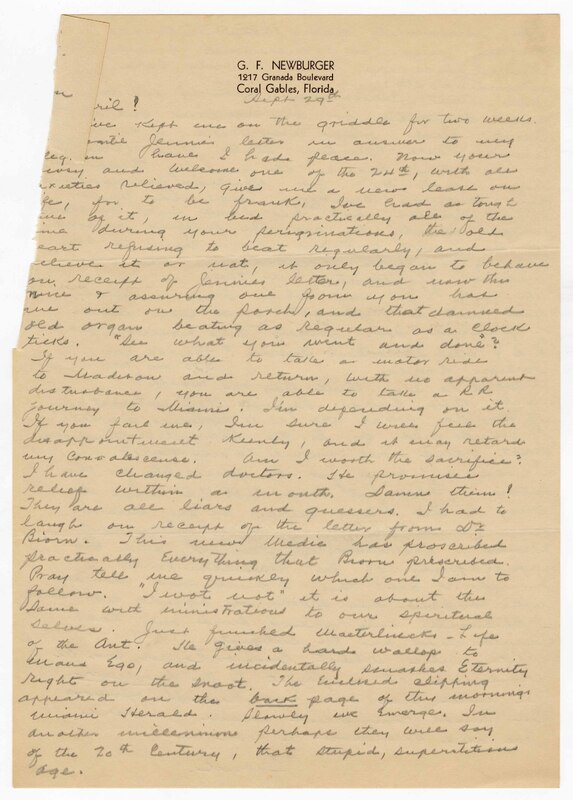 G. F. NEWBURGER
1217 Granada Boulevard
Coral Gables, Florida
Sept 29th
ril!
ve kept me on the griddle for two weeks.
Jennies letter in answer to my
have I had peace. Now your
and welcome one of the 24th, with all
xieties relieved, give me a new lease on
fe, for to be frank, I've had as tough
me of it, in bed practically all of the
me during your peregrinations, the old
eart refusing to beat regularly, and
elieve it or not, it only began to behave
on receipt of Jennies letter, and now this
nice & assuring one from you has
me out on the porch, and that damned
old organ beating as regular as a clock
ticks. "See what you went and done"?
If you are able to take a motor ride
to Madison and return, with no apparent
disturbance, you are able to take a RR
journey to Miami. I'm depending on it.
If you fail me, I'm sure I will feel the
disappointment keenly, and it may retard
my convalescence. Am I worth the sacrifice?
I have changed doctors. He promises
relief within a month. Damn them!
They are all liars and guessers. I had to
laugh on receipt of the letter from Dr
Biorn. This new Medic has proscribed
practically everything that Biorn prescribed.
Pray tell me quickly which one I am to
follow. "I wot not" it is about the
same with ministrations to our spiritual
selves. Just finished Maeterlincks - Life
of the Ant. He gives a hard wallop to
mans Ego, and incidentally smashes Eternity
right on the snoot. The enclosed clipping
appeared on the back page of this mornings
Miami Herald. Slowly we emerge. In
another millennium perhaps they will say
of the 20th Century, that stupid, superstitious
age.